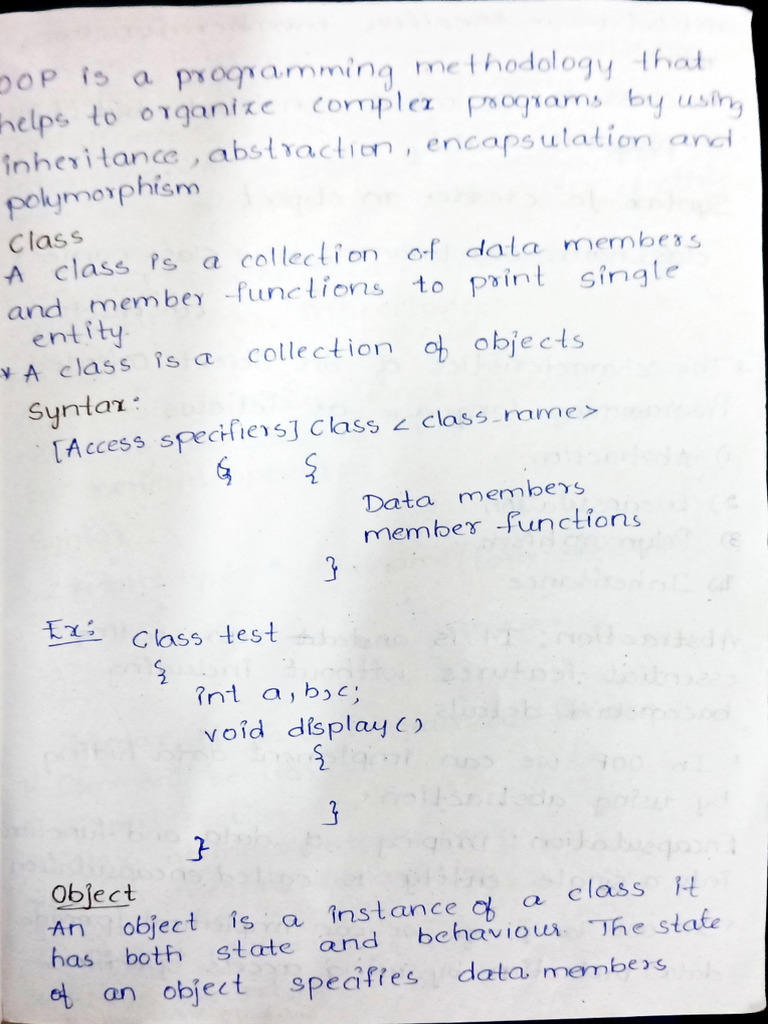 OOP is a programming methodology that
helps to organize complex programs by using
inheritance, abstraction, encapsulation and
polymorphism
Class
A class is a collection of data members
and member functions to print single
entity.
* A class is a collection of objects
Syntax:
[Access specifiers] class < class_name>
{ {
Data members
member functions
}
Ex: Class test
{
int a,b,c;
void display()
{
}
}
Object
An object is a instance of a class it
has both state and behaviour The state
of an object specifies data members